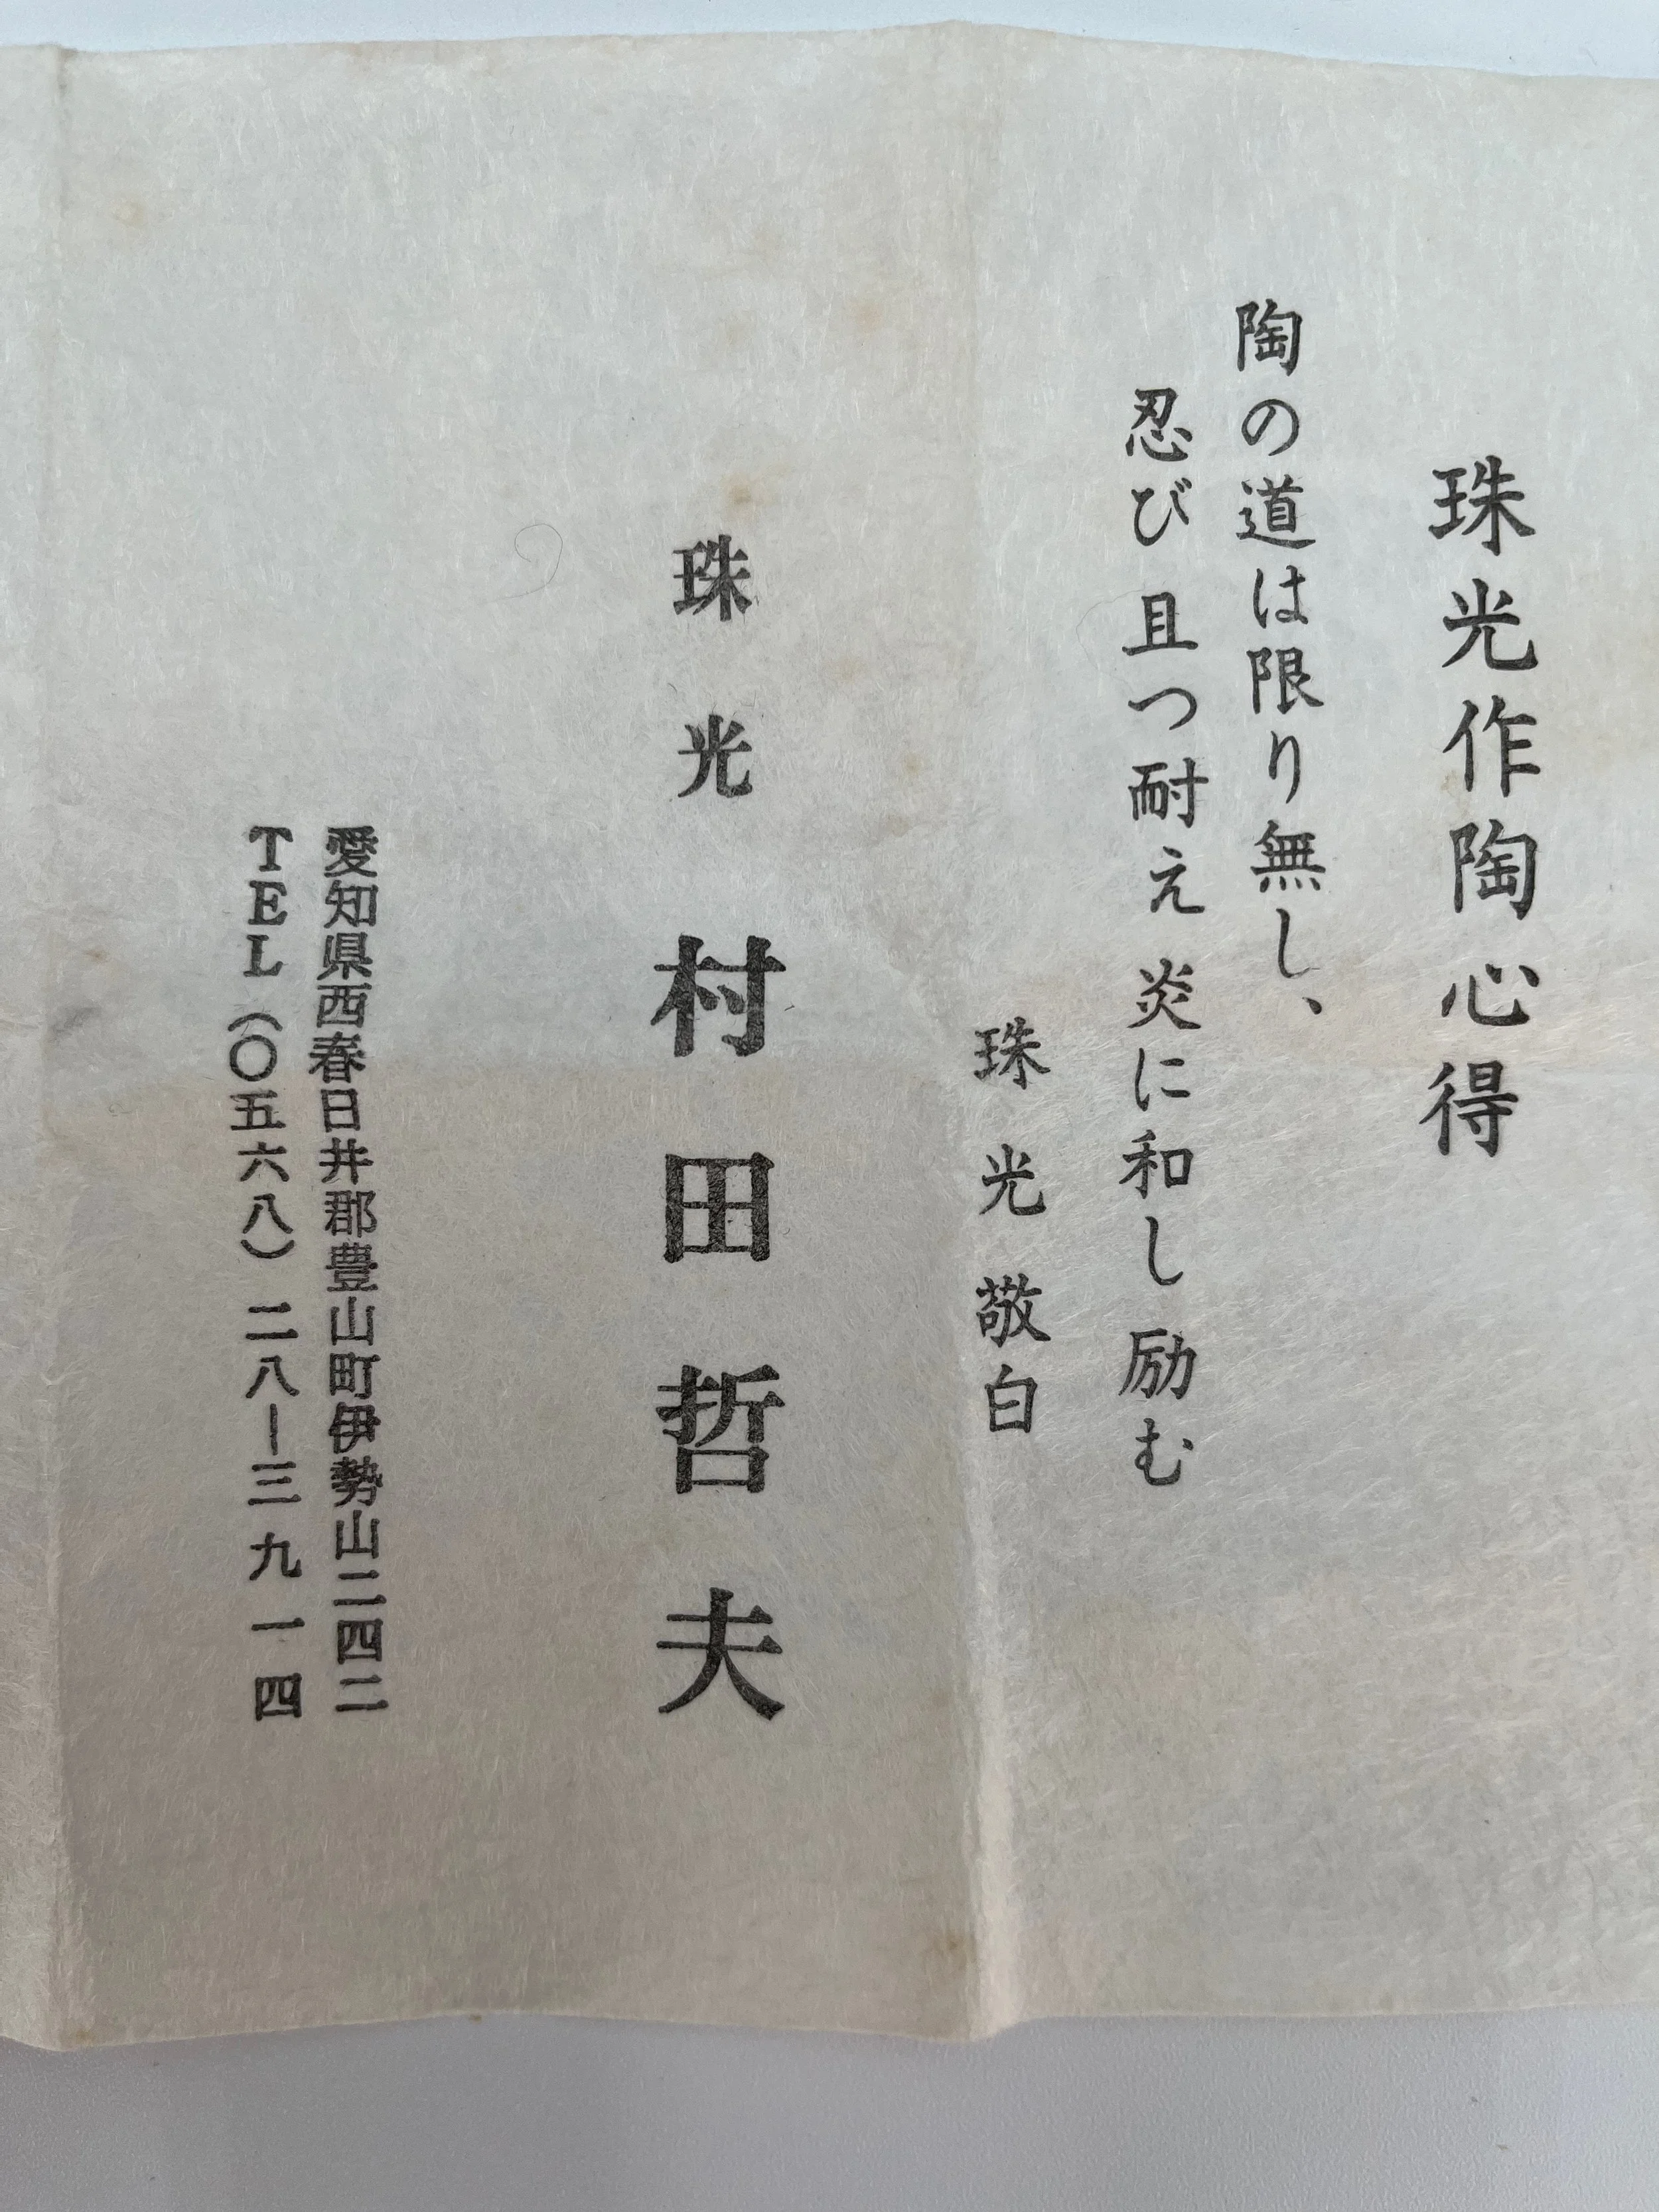 珠光作陶心得
陶の道は限り無し、
忍び且つ耐え炎に和し励む
珠光敬白
珠光 村田哲夫
愛知県西春日井郡豊山町伊勢山二四二
TEL(〇五六八)二八ー三九一四